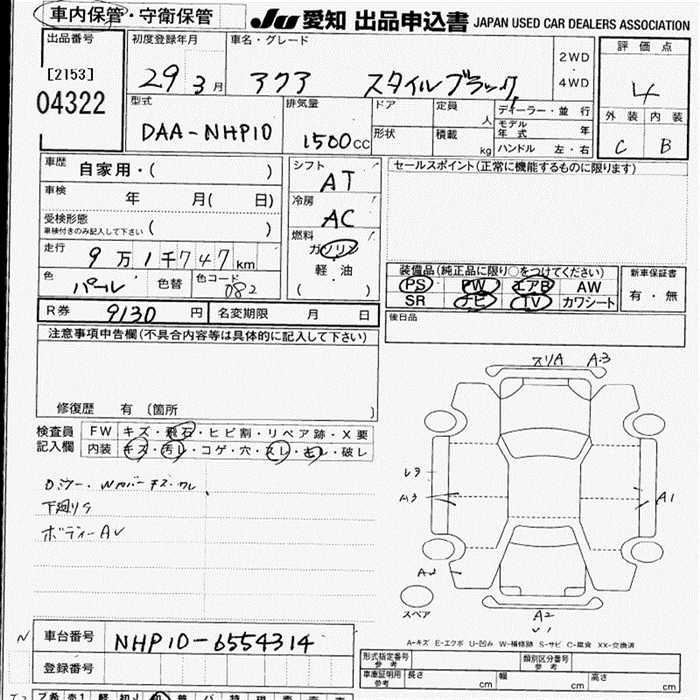 車内保管・守衛保管
JU 愛知 出品申込書 JAPAN USED CAR DEALERS ASSOCIATION
出品番号
[2153]
04322
初度登録年月
29 3月
車名・グレード
アクア スタイルブラック
2WD
4WD
評価点
4
外装 内装
C B
型式
DAA-NHP10
排気量
1500cc
ドア
形状
定員 人
積載 kg
ディーラー・並行
モデル年式 年
ハンドル 左・右
車歴
自家用・( )
車検
年 月( 日)
受検形態
車検付きのみ記入して下さい ( )
走行
9万1千747km
色
パール
色替
色コード
082
シフト
AT
冷房
AC
燃料
ガソリン
軽・油
( )
セールスポイント(正常に機能するものに限ります)
装備品(純正品に限り○をつけてください)
PS PW エアB AW
SR ナビ TV カワシート
新車保証書
有・無
後日品
R券 9130円
名変期限 月 日
注意事項申告欄(不具合内容等は具体的に記入して下さい)
修復歴 有 〔箇所 〕
検査員記入欄
FW キズ・飛石・ヒビ割・リペア跡・X要
内装 キズ・汚レ・コゲ・穴・スレ・破レ
下廻りS
A3
A1
A2
スペア
A-キズ E-エクボ U-凹み W-補修跡 S-サビ C-腐食 XX-交換済
車台番号
NHP10-6554314
登録番号
形式指定番号
参考
類別区分番号
参考
車庫証明用
参考
長さ cm
幅 cm
高さ cm